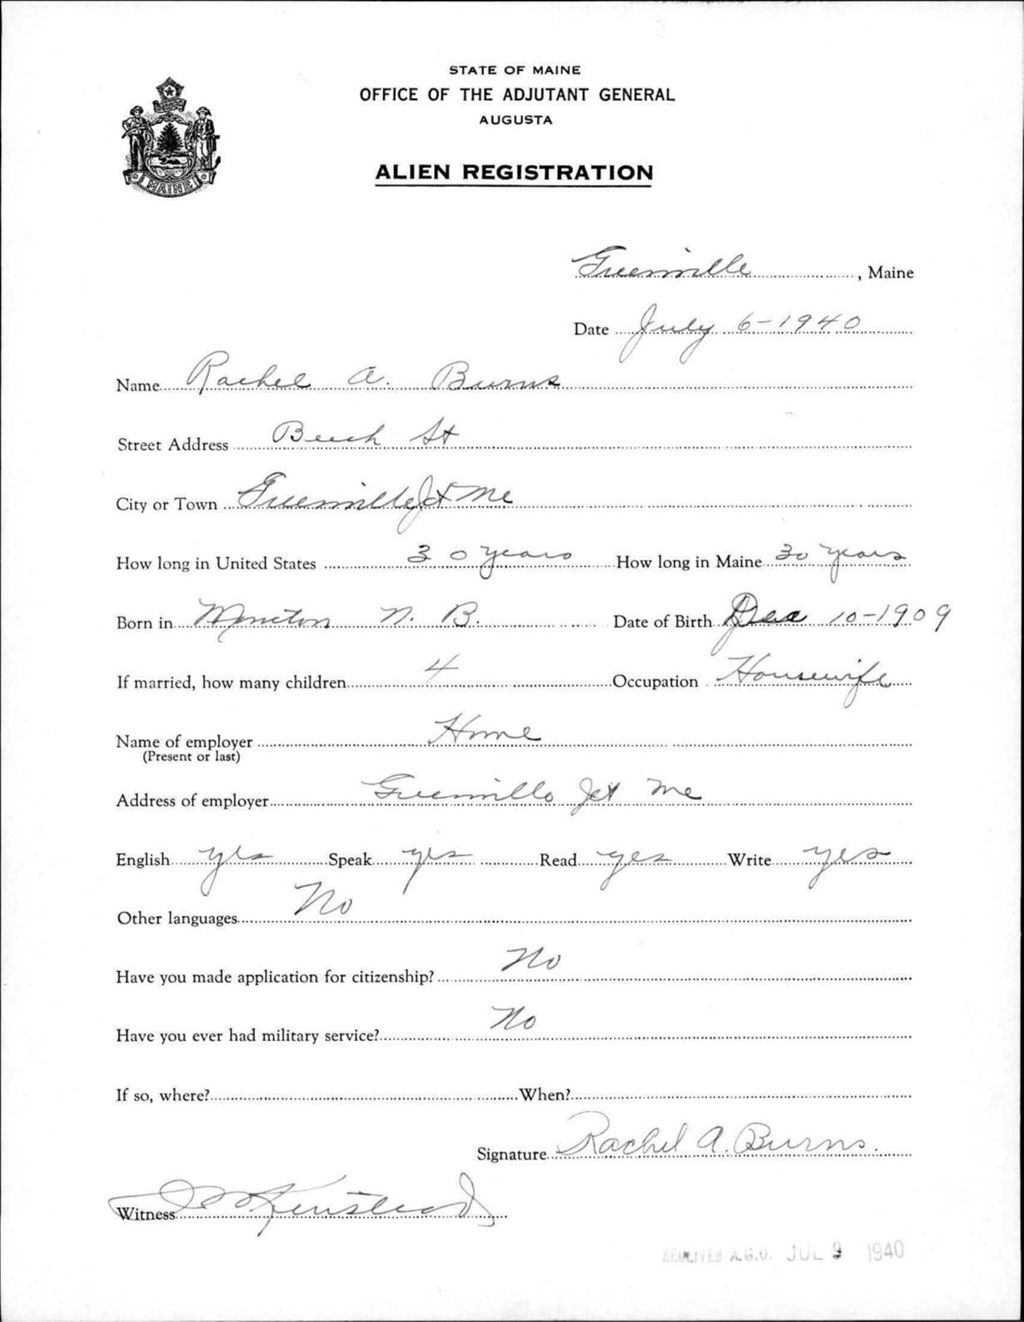 STATE OF MAINE
OFFICE OF THE ADJUTANT GENERAL
AUGUSTA
ALIEN REGISTRATION
MAINE
Greenville, Maine
Date July 6-1940
Name Rachel A. Burns
Street Address Beech St
City or Town Greenville Jct Me
How long in United States 30 years How long in Maine 30 years
Born in Moncton N. B. Date of Birth Dec 10-1909
If married, how many children 4 Occupation Housewife
Name of employer Home
(Present or last)
Address of employer Greenville Jct Me
English yes Speak yes Read yes Write yes
Other languages No
Have you made application for citizenship? No
Have you ever had military service? No
If so, where? When?
Signature Rachel A. Burns.
Witness
A.G.O. JUL 9 1940